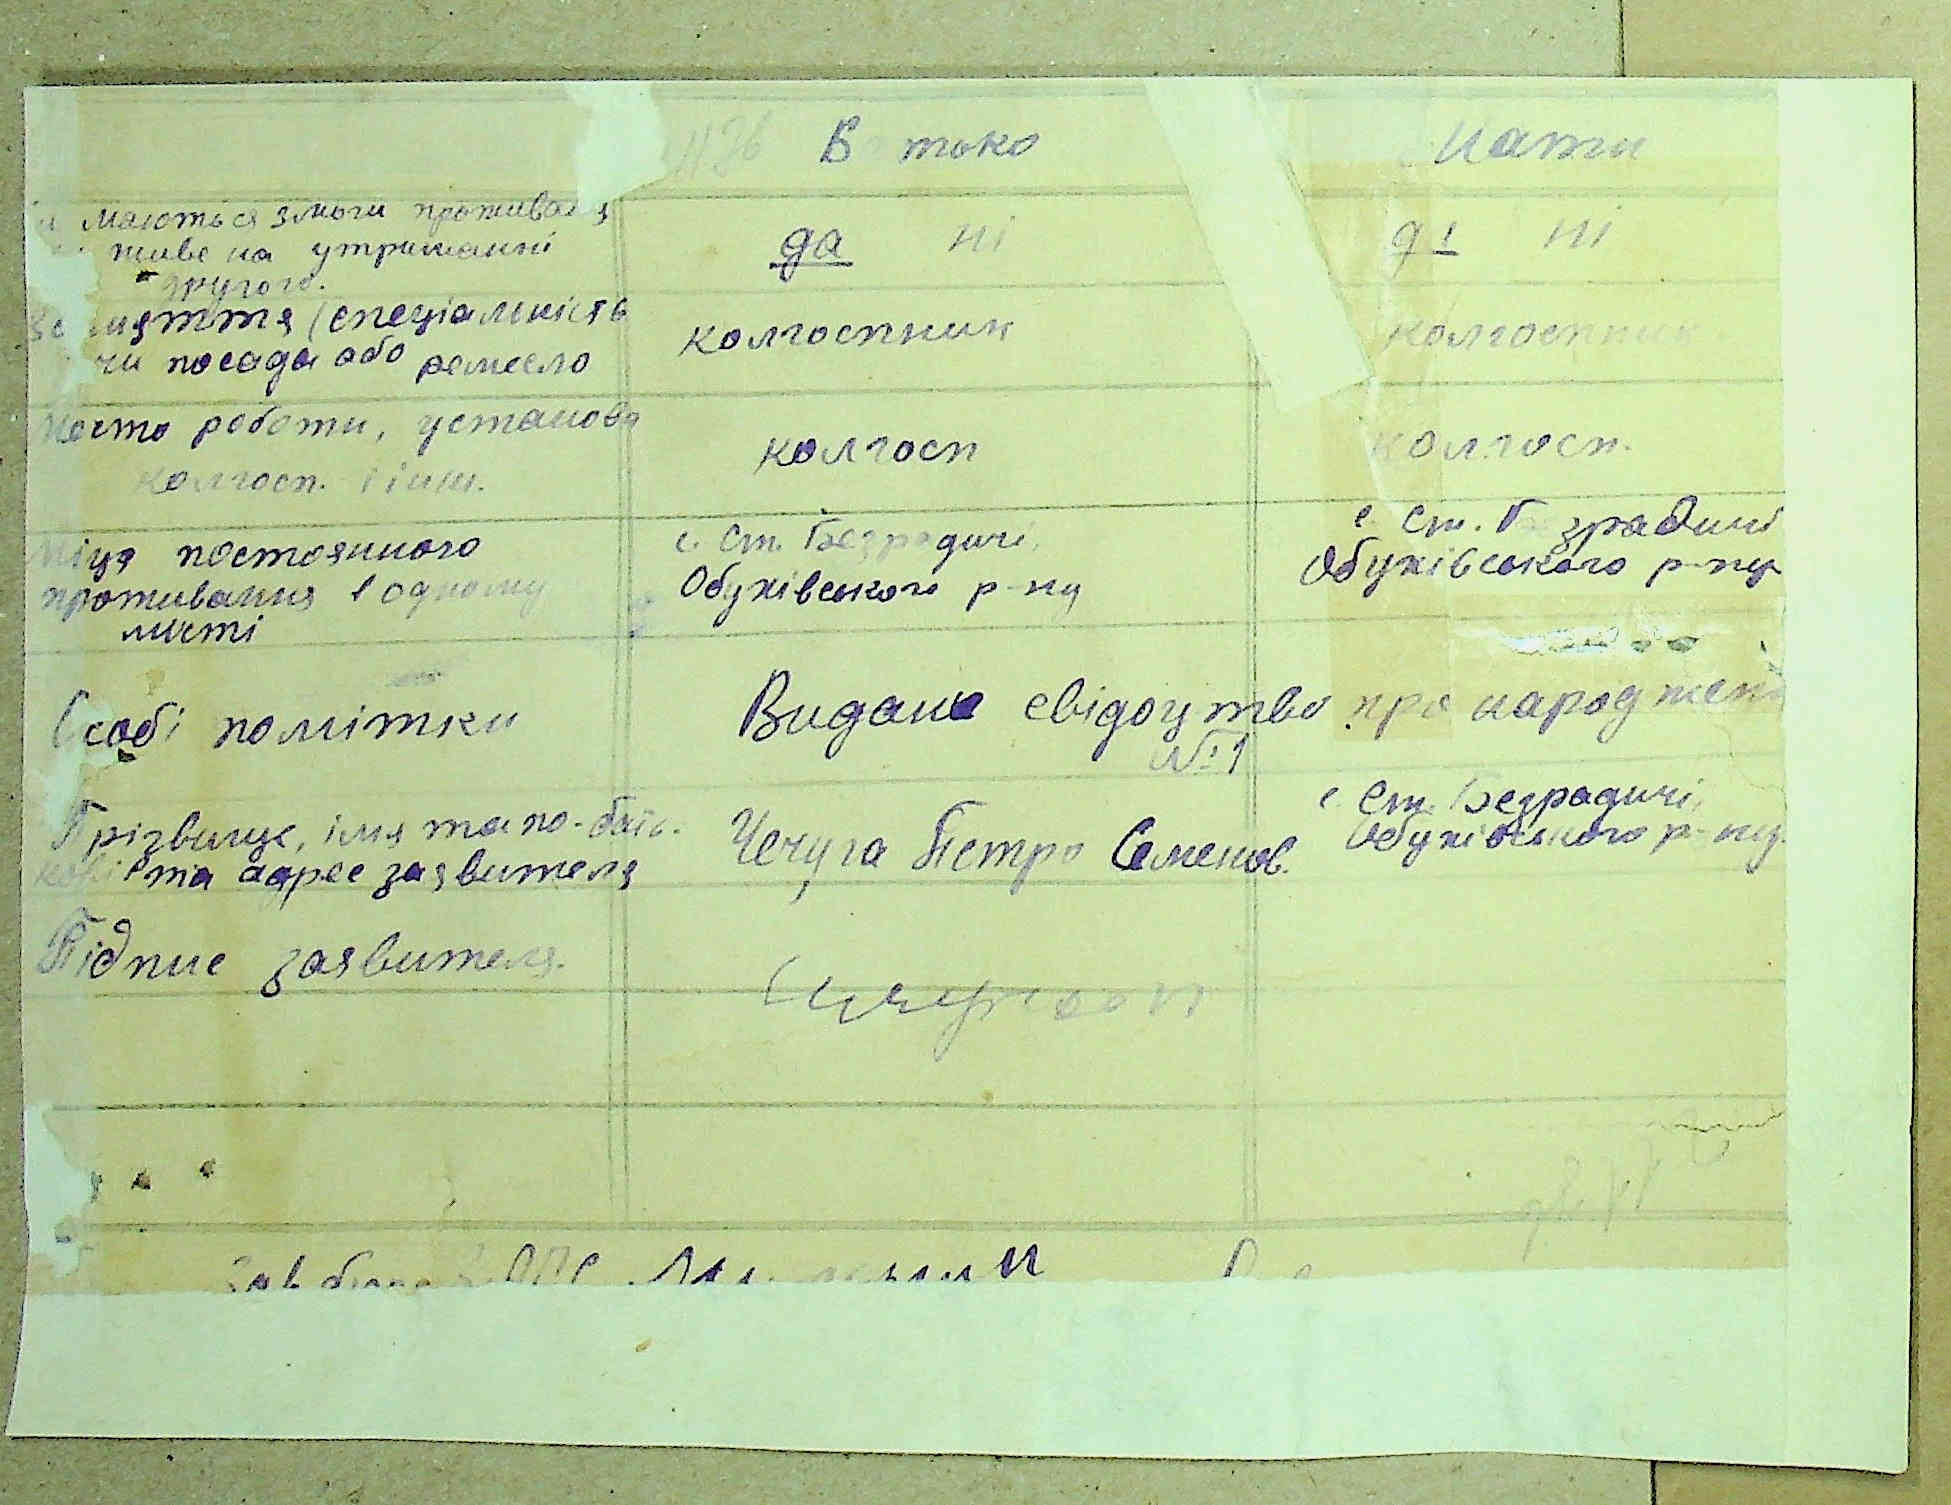 Батько Мати
маються змоги проживання
живе на утриманні
другого.
да ні
ді ні
Заняття (спеціальність
чи посада або ремесло
колгоспник
колгоспник
Место роботи, установа
колгосп. і інш.
колгосп
колгосп.
Міця постоянного
проживання в одному
місті
с. Ст. Безрадичі,
Обухівського р-ну
с. Ст. Безрадичі
Обухівського р-ну
Особі помітки
Видана свідоцтво про народжен
№ 1
Прізвище, імя та по-бать-
кові та адрес заявителя
Чечуга Петро Семенов.
с. Ст. Безрадичі,
Обухівського р-ну.
Підпис заявителя.
Зав бюро